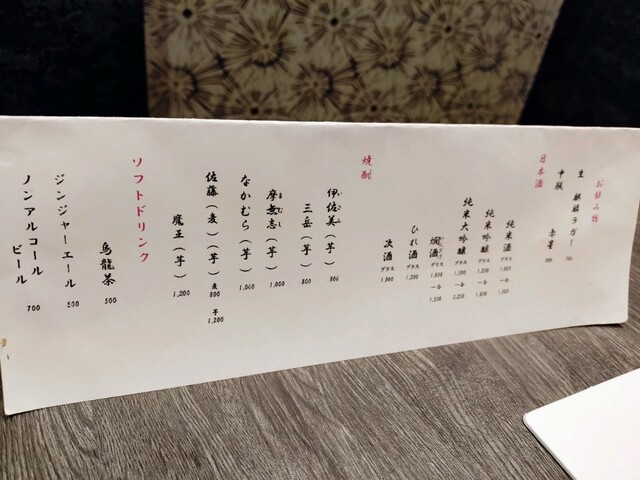 お飲み物
生 麒麟ラガー 700
中瓶 赤星
日本酒
純米酒 グラス 一合
純米吟醸 グラス 一合
純米大吟醸 グラス 一合
燗酒 グラス 一合
ひれ酒 グラス 1,200
次酒 グラス
焼酎
伊佐美(芋) 800
三岳(芋) 800
摩無志(芋) 1,000
なかむら(芋) 1,000
佐藤(麦)(芋) 麦 800 芋 1,200
魔王(芋) 1,200
ソフトドリンク
烏龍茶 500
ジンジャーエール 500
ノンアルコール
ビール 700